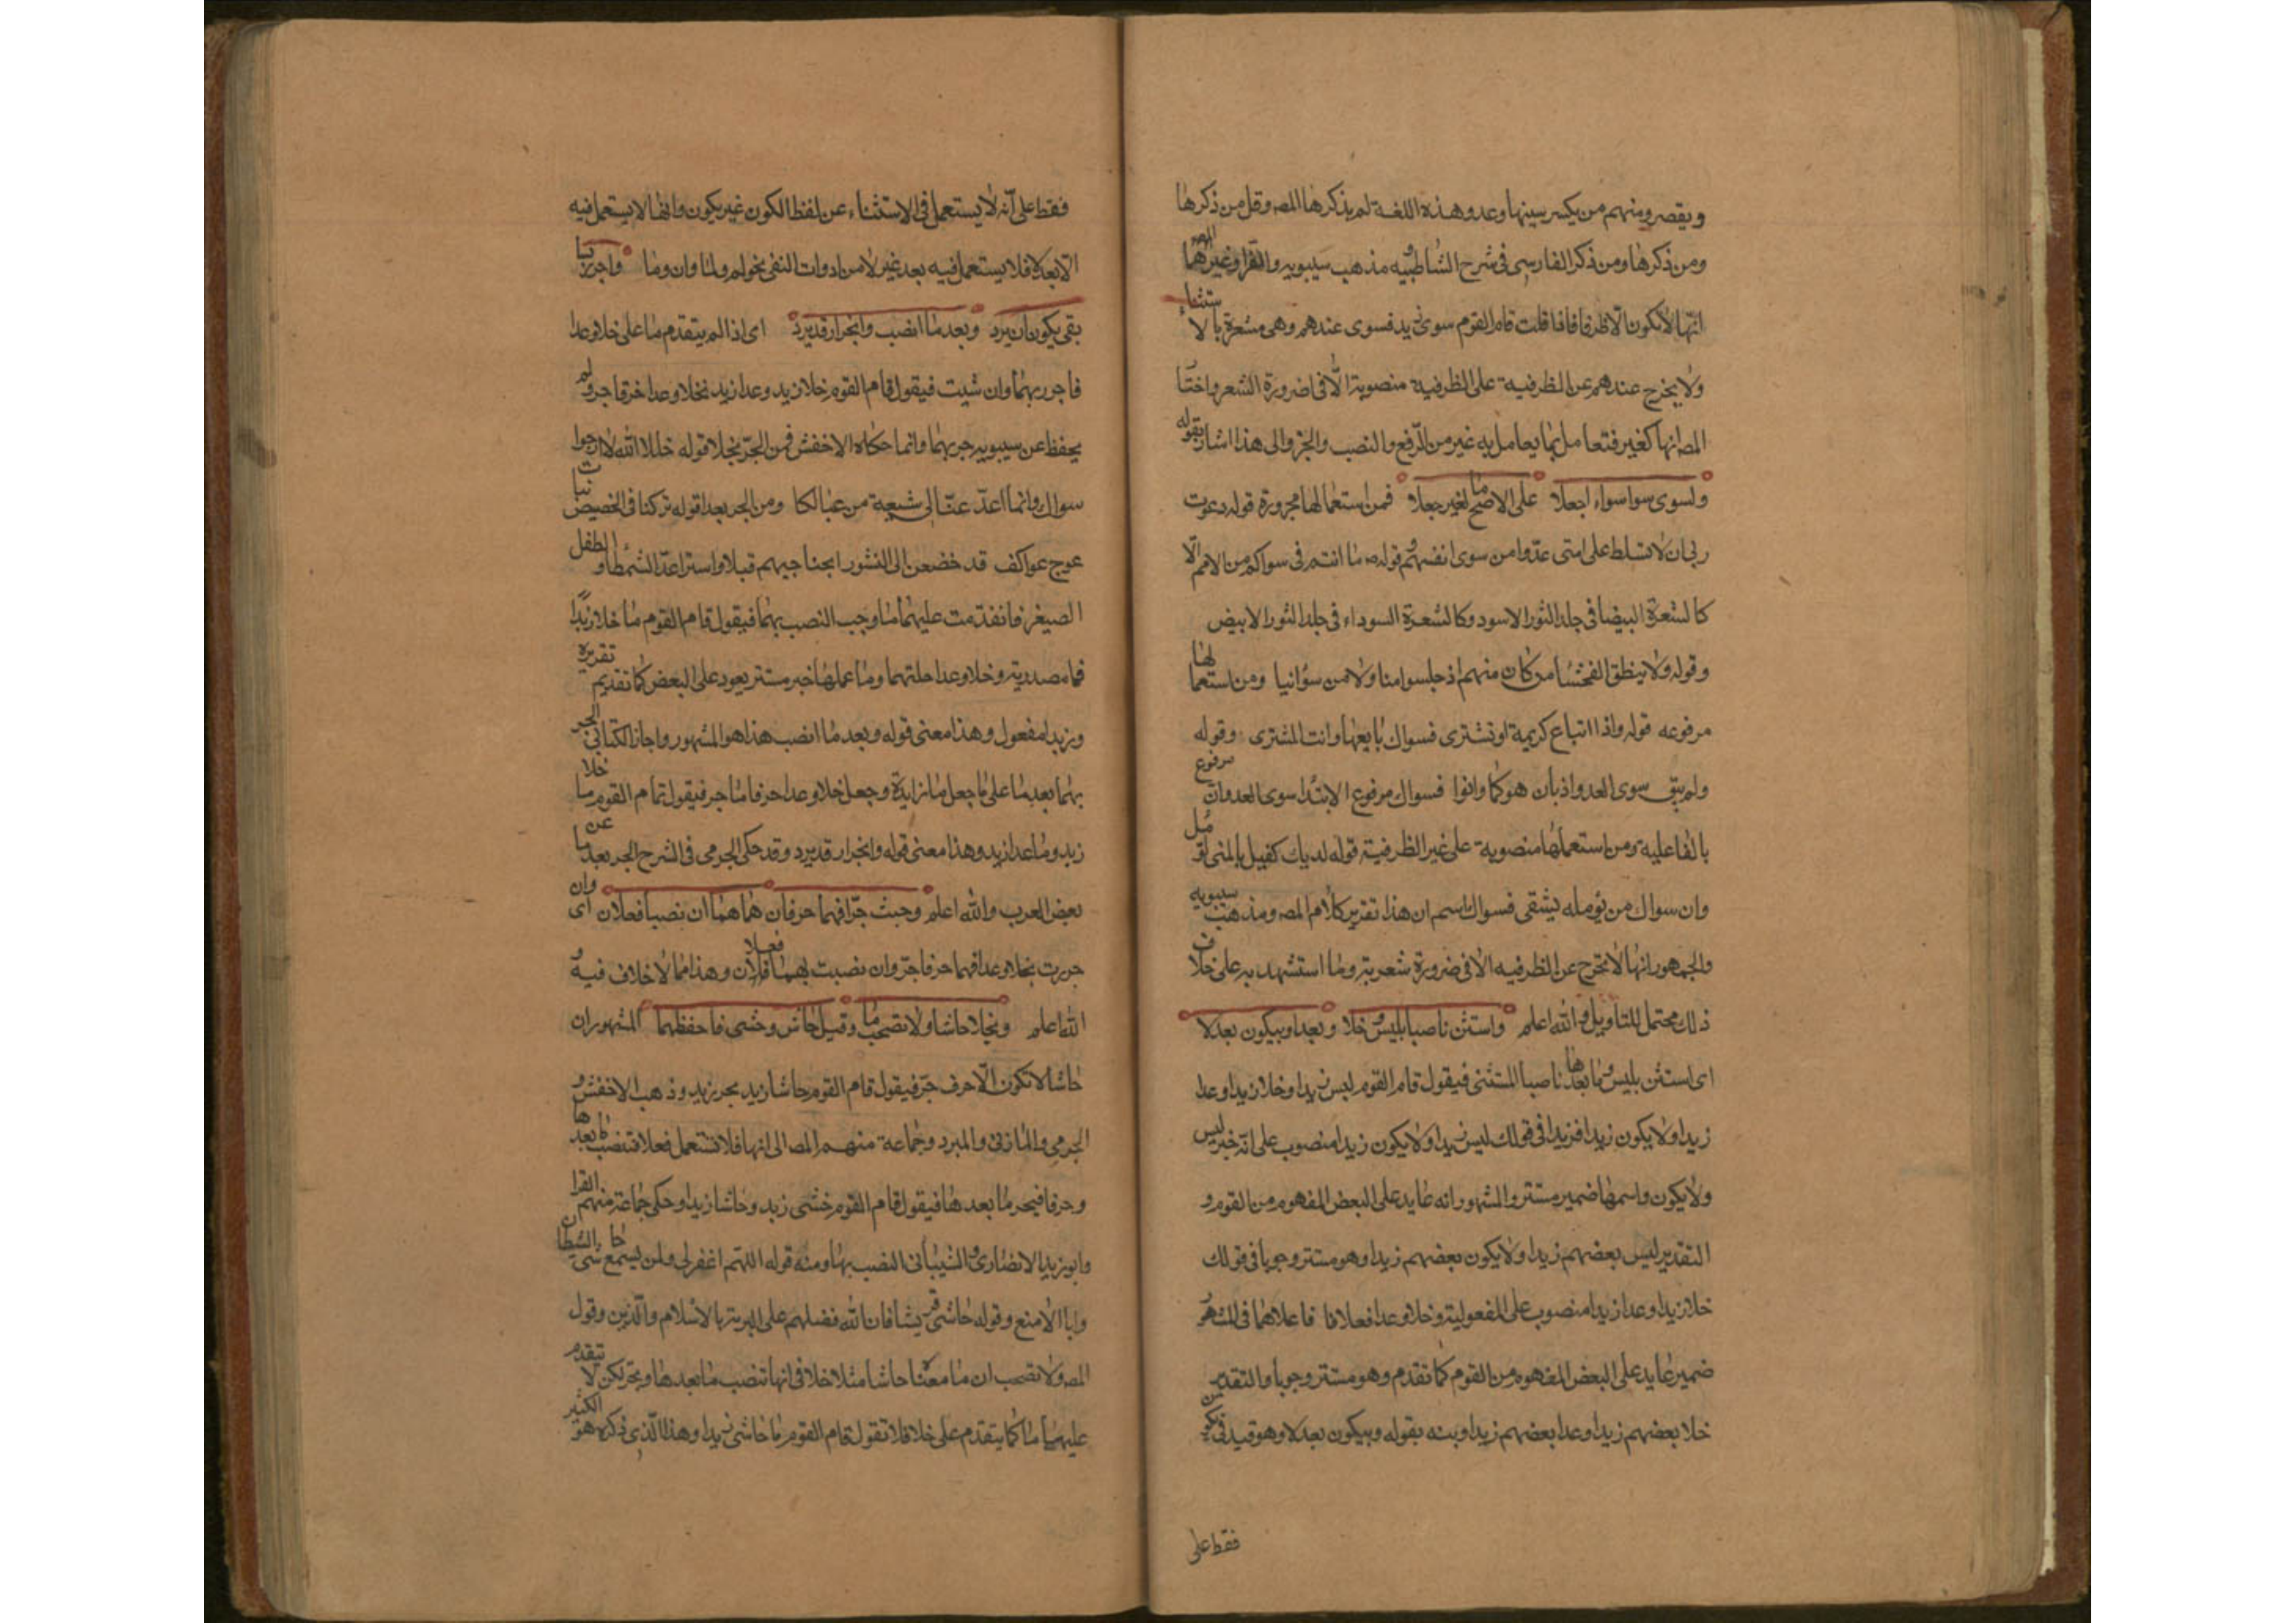 ويقصر ومنهم من يكسر سينها وعد وهذه اللغة لم يذكرها المص وقل من ذكرها
ومن ذكرها ومن ذكر الفارسى فى شرح الشاطبيه ومذهب سيبويه والفرا وغيرهما
انها لا تكون الا ظرفا فاذا قلت قام القوم سوى زيد فسوى عندهم وهى مشعرة بالاستثناء
ولا يخرج عندهم عن الظرفية على الظرفية منصوبة الا فى ضرورة الشعر واختا
المص انها كغير فتعامل بما يعامل به غير من الرفع والنصب والجر والى هذا اشار بقوله
ولسوى سوا سواء اجعلا على الاصح ما لغير جعلا فمن استعمالها مجرورة قوله دعوت
ربى ان لا تسلط على امتى عدوا من سوى انفسهم وقوله ما انتم فى سواكم من الامم الا
كالشعرة البيضا فى جلد الثور الاسود وكالشعرة السوداء فى جلد الثور الابيض
وقوله ولا ينطق الفحشا من كان منهم اذ جلسوا منا ولا من سوانيا ومن استعمالها
مرفوعه قوله واذا اتباع كريمة او تشترى فسواك بايعها وانت المشترى وقوله
ولم يبق سوى العدوان دنّاهم كما دانوا فسواك مرفوع الابتدا سوى العدوان مرفوع
بالفاعلية ومن استعملها منصوبة على غير الظرفية قوله لديك كفيل بالمنى لمؤمل
وان سواك من يؤمله يشقى فسواك اسم ان هذا تقرير كلام المص ومذهب سيبويه
والجمهور انها لا تخرج عن الظرفيه الا فى ضرورة شعرية وما استشهد به على خلاف
ذلك محتمل للتاويل والله اعلم واستثن ناصبا بليس وخلا وبعدا وبيكون بعد لا
اى استثن بليس وما بعدها ناصبا المستثنى فيقول قام القوم ليس زيدا وخلا زيدا وعدا
زيدا ولا يكون زيدا فزيدا فى قولك ليس زيدا ولا يكون زيدا منصوب على انه خبر ليس
ولا يكون واسمها ضمير مستتر والمشهور انه عايد على البعض المفهوم من القوم و
التقدير ليس بعضهم زيدا ولا يكون بعضهم زيدا وهو مستتر وجوبا فى قولك
خلا زيدا وعدا زيدا منصوب على المفعولية وخلا وعدا فعلان فاعلاهما فى المشهور
ضمير عايد على البعض المفهوم من القوم كما تقدم وهو مستتر وجوبا والتقدير
خلا بعضهم زيدا وعدا بعضهم زيدا ونبه بقوله وبيكون بعد لا وهو قيد فى يكون
فقط على
فقط على انه لا يستعمل فى الاستثناء عن لفظ الكون غير يكون وانها لا يستعمل فيه
الا بعد لا فلا يستعمل فيه بعد غير لا من ادوات النفى نحو لم ولما وان وما واجرر بسا
بقى يكون ان يرد وبعد ما انصب وانجرار قد يرد اى اذا لم يتقدم ما على خلا وعدا
فاجرر بهما وان شيت فيقول قام القوم خلا زيد وعدا زيد فخلا وعدا حرفا جر ولم
يحفظ عن سيبويه جر بهما وانما حكاه الاخفش فمن الجر بخلا قوله خلا الله لا ارجوا
سواك وانما اعد عيالى شعبة من عيالكا ومن الجر بعدا قوله تركنا فى الحضيض بنات
عوج عواكف قد خضعن الى النشور ابحنا حيهم قتلا واسرا عدا الشمطا والطفل
الصغير فان تقدمت عليهما ما وجب النصب بهما فيقول قام القوم ما خلا زيدا
فما مصدرية وخلا وعدا صلتهما وفاعلهما ضمير مستتر يعود على البعض كما تقدم تقريره
وزيدا مفعول وهذا معنى قوله وبعد ما انصب هذا هو المشهور واجاز الكسائى الجر
بهما بعد ما على ما جعل ما زايدة وجعل خلا وعدا حرفا جر فيقول قام القوم ما خلا
زيد وما عدا زيد وهذا معنى قوله وانجرار قد يرد وقد حكى الجرمى فى الشرح الجر بعد ما عن
بعض العرب والله اعلم وحيث جرا فهما حرفان كما هما ان نصبا فعلان اى وان
جررت بخلا وعدا فهما حرفا جر وان نصبت بهما فعلان وهذا مما لا خلاف فيه و
الله اعلم وكخلا حاشا ولا تصحب ما وقيل حاش وحشى فاحفظهما المشهور ان
حاشا لا تكون الا حرف جر فيقول قام القوم حاشا زيد بجر زيد وذهب الاخفش و
الجرمى والمازنى والمبرد وجماعة منهم المص الى انها فلا تستعمل فعلا فتنصب ما بعدها
وحرفا فيجر ما بعدها فيقول قام القوم خشى زيد وحاشا زيدا وحكى جماعة منهم الفرا
وابو زيد الانصارى والشيبانى النصب بها ومنه قوله اللهم اغفر لى ولمن يسمع حاشى الشيطان
وابا الاصبع وقوله حاشى قريشا فان الله فضلهم على البرية بالاسلام والدين وقول
المص ولا تصحب ما معناه ان حاشا مثل خلا فى انها تنصب ما بعدها وتجر لكن لا يتقدم
عليها ما كما يتقدم على خلا فلا تقول قام القوم ما حاشى زيدا وهذا الذى ذكره هو الكثير